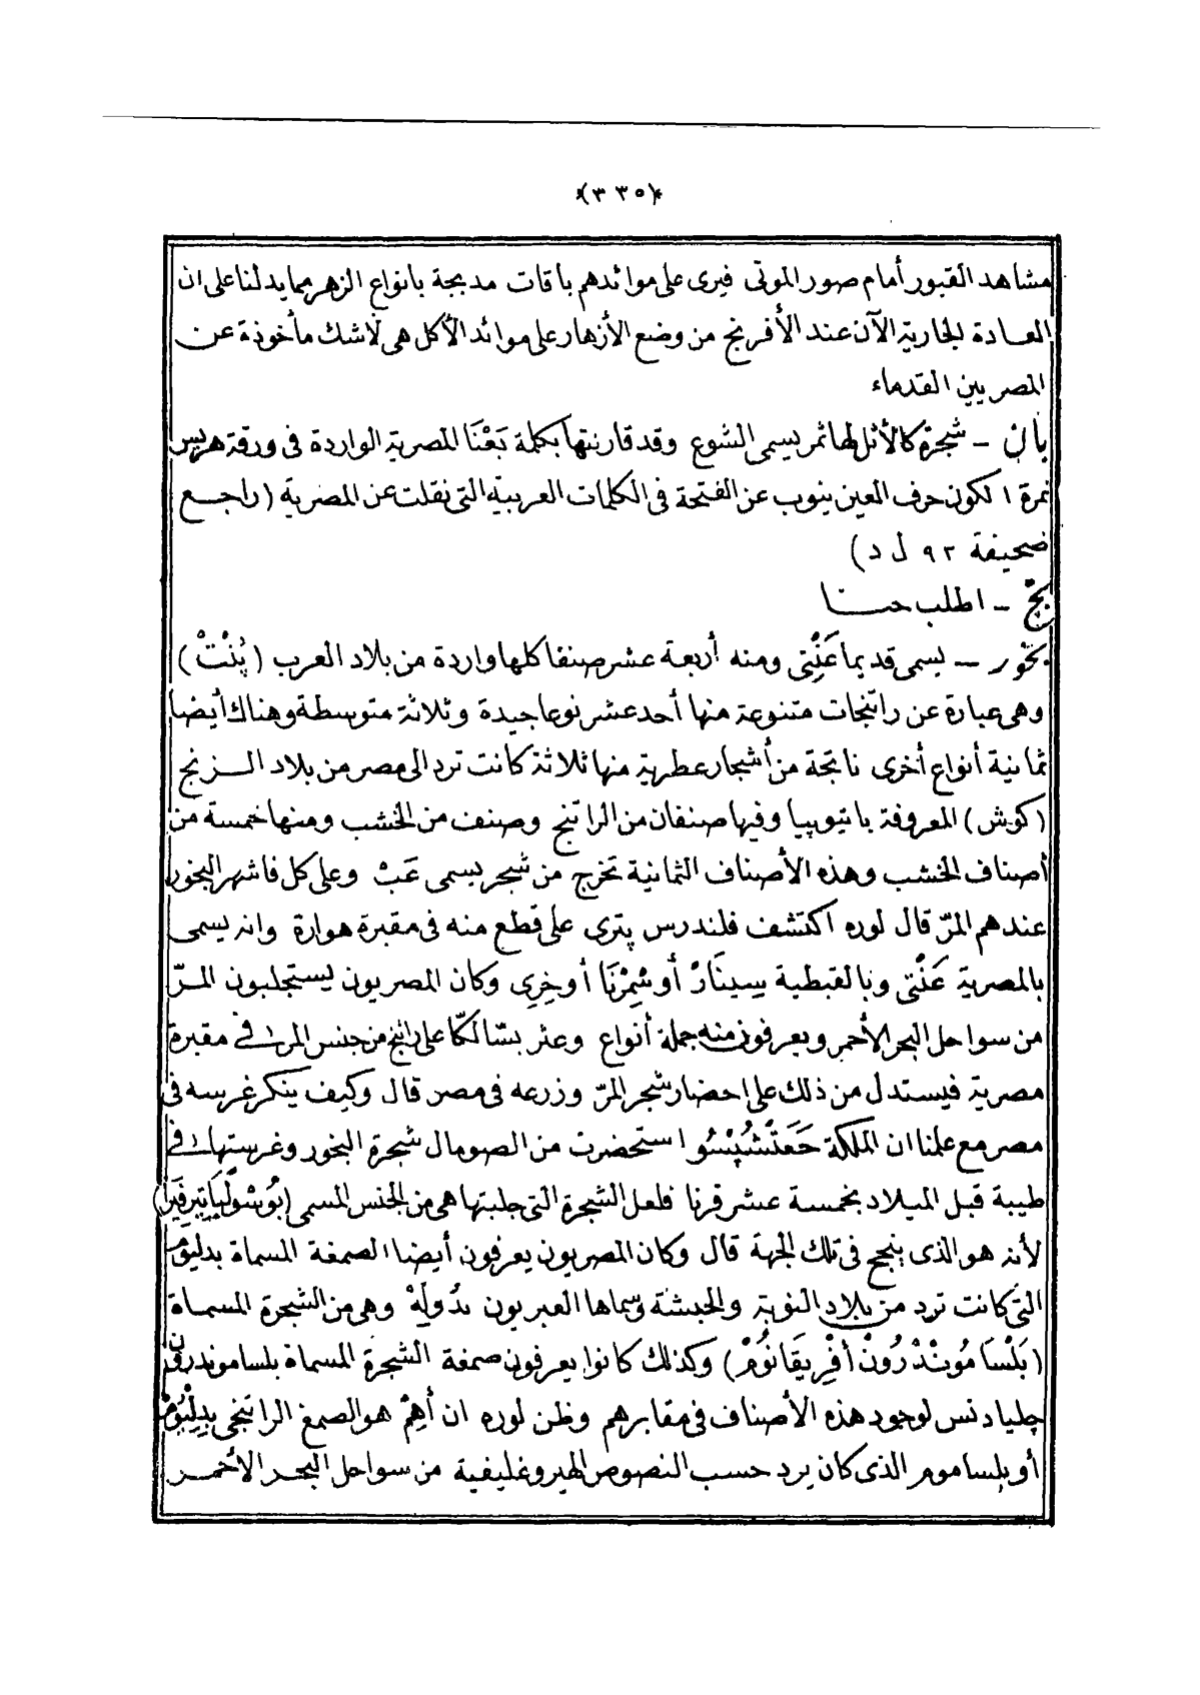 (٣٣٥)
مشاهد القبور أمام صور الموتى فيرى على موائدهم باقات مدبجة بانواع الزهر مما يدلنا على ان
العادة الجارية الآن عند الأفرنج من وضع الأزهار على موائد الأكل هى لاشك مأخوذة عن
المصريين القدماء
بان - شجرة كالأثل لها ثمر يسمى الشوع وقد قارنتها بكلمة بَعْنَا المصرية الواردة فى ورقة هريس
نمرة ١ لكون حرف العين ينوب عن الفتحة فى الكلمات العربية التى نقلت عن المصرية (راجع
صحيفة ٩٢ ل د)
بُجّ - اطلب حنا
بخور - يسمى قديما عَنْتِى ومنه أربعة عشر صنفا كلها واردة من بلاد العرب (پُنْتْ)
وهى عبارة عن راتنجات متنوعة منها أحد عشر نوعا جيدة وثلاثة متوسطة وهناك أيضا
ثمانية أنواع أخرى ناتجة من أشجار عطرية منها ثلاثة كانت ترد الى مصر من بلاد الزنج
(كوش) المعروفة باتيوپيا وفيها صنفان من الراتنج وصنف من الخشب ومنها خمسة من
أصناف الخشب وهذه الأصناف الثمانية تخرج من شجر يسمى عَبْ وعلى كل فاشهر البخور
عندهم المرّ قال لوره اكتشف فلندرس پترى على قطع منه فى مقبرة هوارة وانه يسمى
بالمصرية عَنْتِى وبالقبطية سِينَارْ أو شِمِرْنَا أو خِرِى وكان المصريون يستجلبون المرّ
من سواحل البحر الأحمر ويعرفون منه جملة أنواع وعثر بسّالكّا على راتنج من جنس المر فى مقبرة
مصرية فيستدل من ذلك على احضار شجر المرّ وزرعه فى مصر قال وكيف ينكر غرسه فى
مصر مع علمنا ان الملكة حَعَتْشُپْسُو استحضرت من الصومال شجرة البخور وغرستها فى
طيبة قبل الميلاد بخمسة عشر قرنا فلعل الشجرة التى جلبتها هى من الجنس المسمى
لأنه هو الذى ينجح فى تلك الجهة قال وكان المصريون يعرفون أيضا الصمغة المسماة بدليوم
التى كانت ترد من بلاد النوبة والحبشة وسماها العبريون بدُولَهْ وهى من الشجرة المسماة
(بَلْسَا مُونْدْرُونْ أفْرِيقَانُومْ) وكذلك كانوا يعرفون صمغة الشجرة المسماة بلساموندرون
چليادنس لوجود هذه الأصناف فى مقابرهم وظن لوره ان أَهِمْ هو الصمغ الراتنجى بِدِلْيُومْ
أو بلساموم الذى كان يرد حسب النصوص الهيروغليفية من سواحل البحر الأحمر